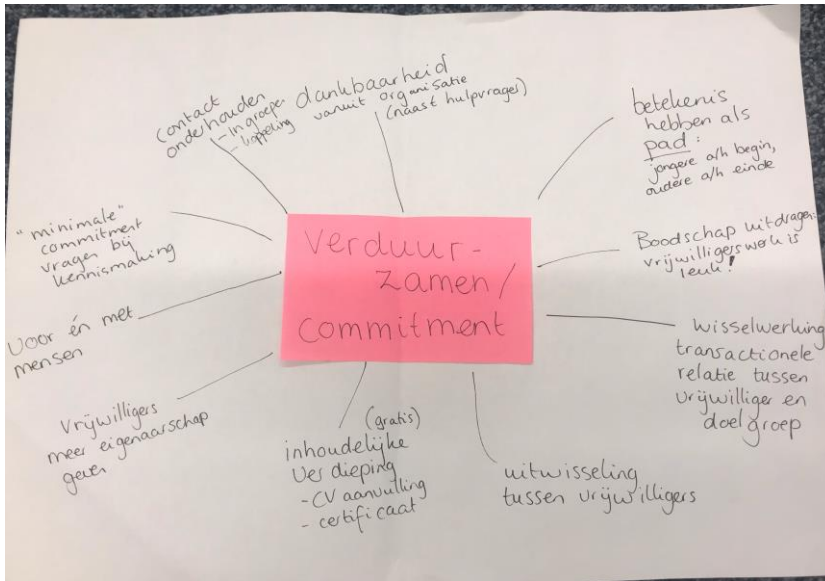 verduur-
zamen/
commitment
contact
onderhouden
- in groepen
- koppeling
dankbaarheid
vanuit organisatie
(naast hulpvrager)
betekenis
hebben als
pad:
jongere a/h begin,
oudere a/h einde
Boodschap uitdragen:
vrijwilligerswerk is
leuk!
wisselwerking
transactionele
relatie tussen
vrijwilliger en
doelgroep
uitwisseling
tussen vrijwilligers
(gratis)
inhoudelijke
Verdieping
- CV aanvulling
- certificaat
Vrijwilligers
meer eigenaarschap
geven
Voor én met
mensen
"minimale"
commitment
vragen bij
kennismaking